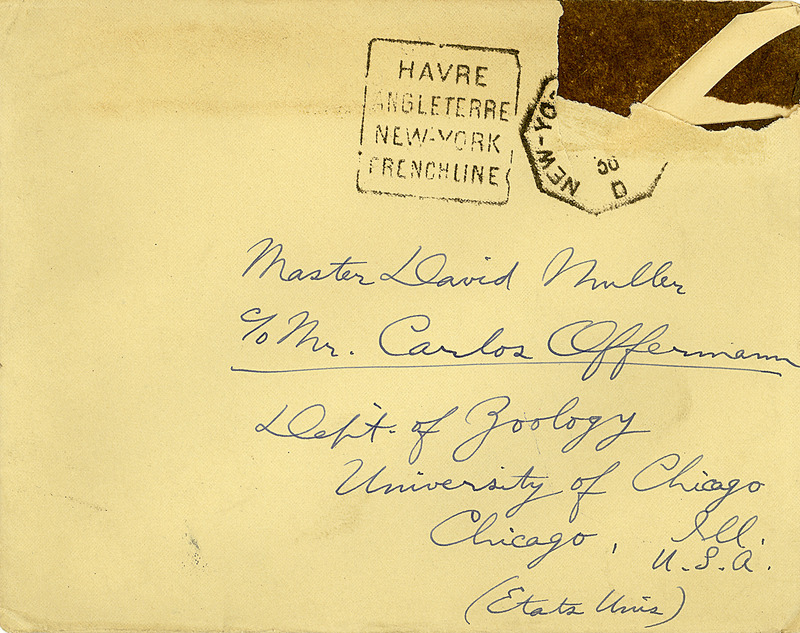 HAVRE
ANGLETERRE
NEW-YORK
FRENCH LINE
NEW-YO
D
Master David Muller
c/o Mr. Carlos Offermann
Dept. of Zoology
University of Chicago
Chicago, Ill.
U.S.A.
(Etats Unis)